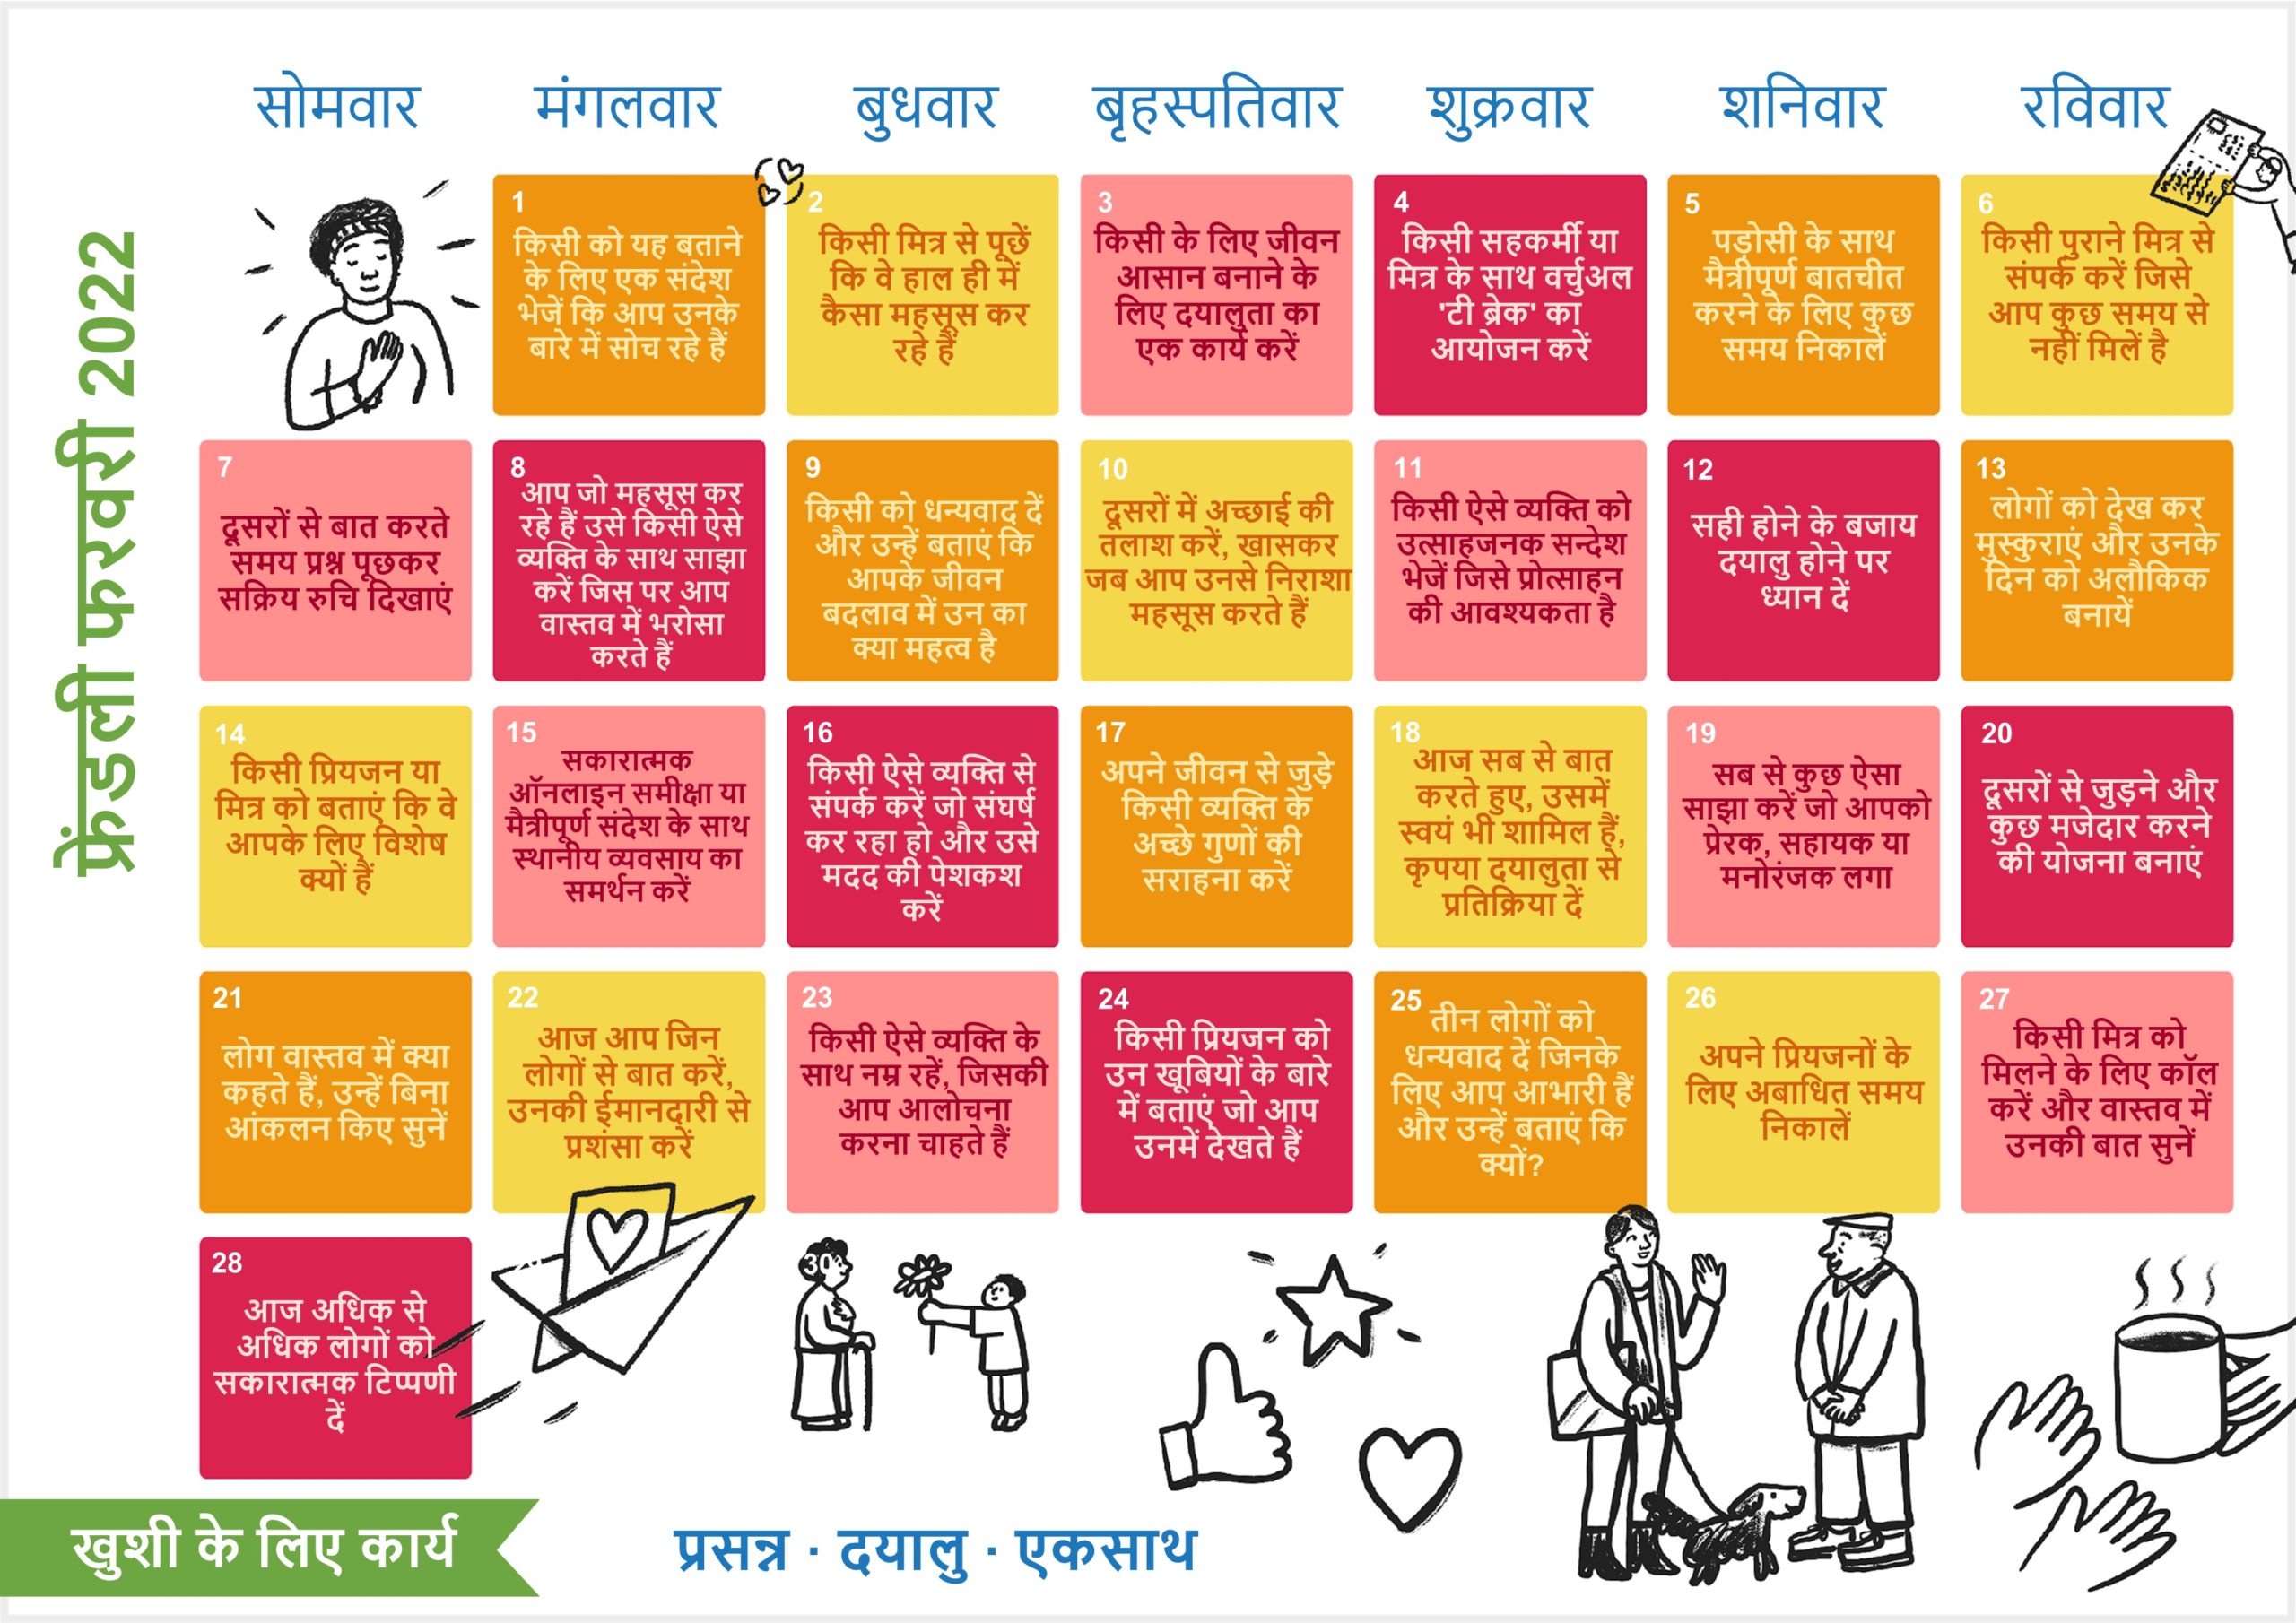 सोमवार मंगलवार बुधवार बृहस्पतिवार शुक्रवार शनिवार रविवार
फ्रेंडली फरवरी 2022
1
किसी को यह बताने
के लिए एक संदेश
भेजें कि आप उनके
बारे में सोच रहे हैं
2
किसी मित्र से पूछें
कि वे हाल ही में
कैसा महसूस कर
रहे हैं
3
किसी के लिए जीवन
आसान बनाने के
लिए दयालुता का
एक कार्य करें
4
किसी सहकर्मी या
मित्र के साथ वर्चुअल
'टी ब्रेक' का
आयोजन करें
5
पड़ोसी के साथ
मैत्रीपूर्ण बातचीत
करने के लिए कुछ
समय निकालें
6
किसी पुराने मित्र से
संपर्क करें जिसे
आप कुछ समय से
नहीं मिलें है
7
दूसरों से बात करते
समय प्रश्न पूछकर
सक्रिय रुचि दिखाएं
8
आप जो महसूस कर
रहे हैं उसे किसी ऐसे
व्यक्ति के साथ साझा
करें जिस पर आप
वास्तव में भरोसा
करते हैं
9
किसी को धन्यवाद दें
और उन्हें बताएं कि
आपके जीवन
बदलाव में उन का
क्या महत्व है
10
दूसरों में अच्छाई की
तलाश करें, खासकर
जब आप उनसे निराशा
महसूस करते हैं
11
किसी ऐसे व्यक्ति को
उत्साहजनक सन्देश
भेजें जिसे प्रोत्साहन
की आवश्यकता है
12
सही होने के बजाय
दयालु होने पर
ध्यान दें
13
लोगों को देख कर
मुस्कुराएं और उनके
दिन को अलौकिक
बनायें
14
किसी प्रियजन या
मित्र को बताएं कि वे
आपके लिए विशेष
क्यों हैं
15
सकारात्मक
ऑनलाइन समीक्षा या
मैत्रीपूर्ण संदेश के साथ
स्थानीय व्यवसाय का
समर्थन करें
16
किसी ऐसे व्यक्ति से
संपर्क करें जो संघर्ष
कर रहा हो और उसे
मदद की पेशकश
करें
17
अपने जीवन से जुड़े
किसी व्यक्ति के
अच्छे गुणों की
सराहना करें
18
आज सब से बात
करते हुए, उसमें
स्वयं भी शामिल हैं,
कृपया दयालुता से
प्रतिक्रिया दें
19
सब से कुछ ऐसा
साझा करें जो आपको
प्रेरक, सहायक या
मनोरंजक लगा
20
दूसरों से जुड़ने और
कुछ मजेदार करने
की योजना बनाएं
21
लोग वास्तव में क्या
कहते हैं, उन्हें बिना
आंकलन किए सुनें
22
आज आप जिन
लोगों से बात करें,
उनकी ईमानदारी से
प्रशंसा करें
23
किसी ऐसे व्यक्ति के
साथ नम्र रहें, जिसकी
आप आलोचना
करना चाहते हैं
24
किसी प्रियजन को
उन खूबियों के बारे
में बताएं जो आप
उनमें देखते हैं
25
तीन लोगों को
धन्यवाद दें जिनके
लिए आप आभारी हैं
और उन्हें बताएं कि
क्यों?
26
अपने प्रियजनों के
लिए अबाधित समय
निकालें
27
किसी मित्र को
मिलने के लिए कॉल
करें और वास्तव में
उनकी बात सुनें
28
आज अधिक से
अधिक लोगों को
सकारात्मक टिप्पणी
दें
30
खुशी के लिए कार्य
प्रसन्न · दयालु · एकसाथ